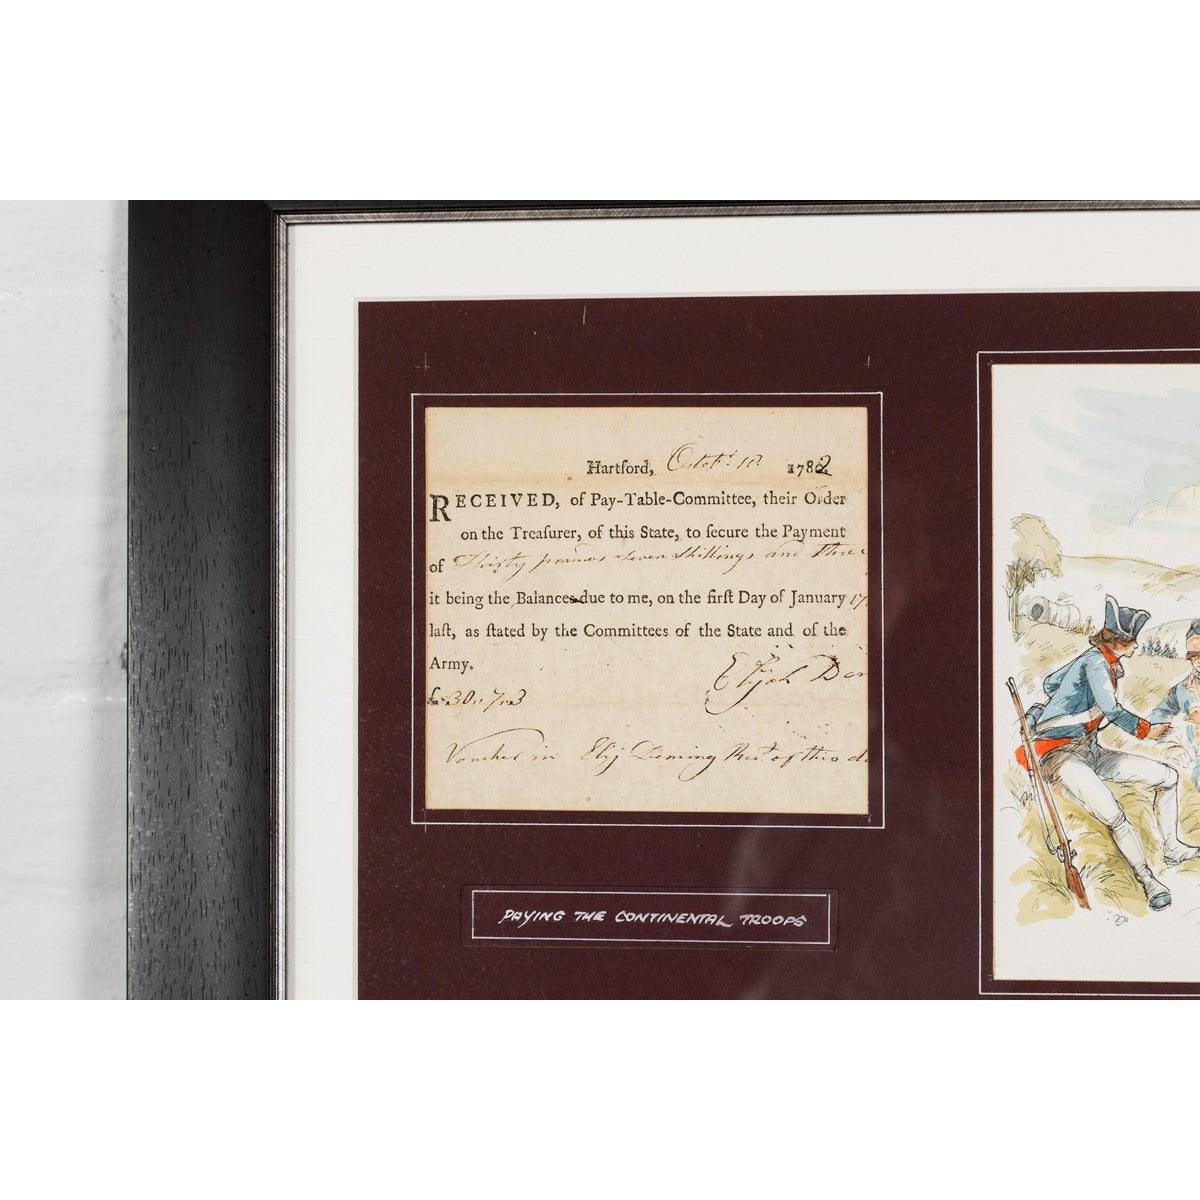 Hartford, Octobr. 10 1782
RECEIVED, of Pay-Table-Committee, their Order
on the Treaſurer, of this State, to ſecure the Payment
of Thirty pounds Seven Shillings and Three
it being the Balances due to me, on the firſt Day of January 17
laſt, as ſtated by the Committees of the State and of the
Army.
Elijah Dem
£30..7..3
Voucher in Elij Deming Rect. of this d
PAYING THE CONTINENTAL TROOPS